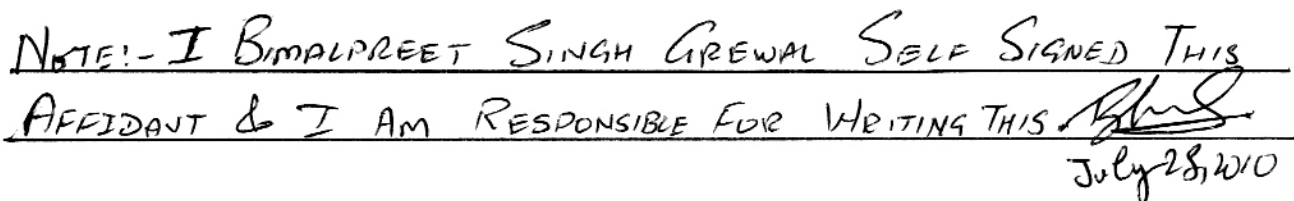 NOTE:- I BIMALPREET SINGH GREWAL SELF SIGNED THIS
AFFIDAVT & I AM RESPONSIBLE FOR WRITING THIS.
July 28, 2010